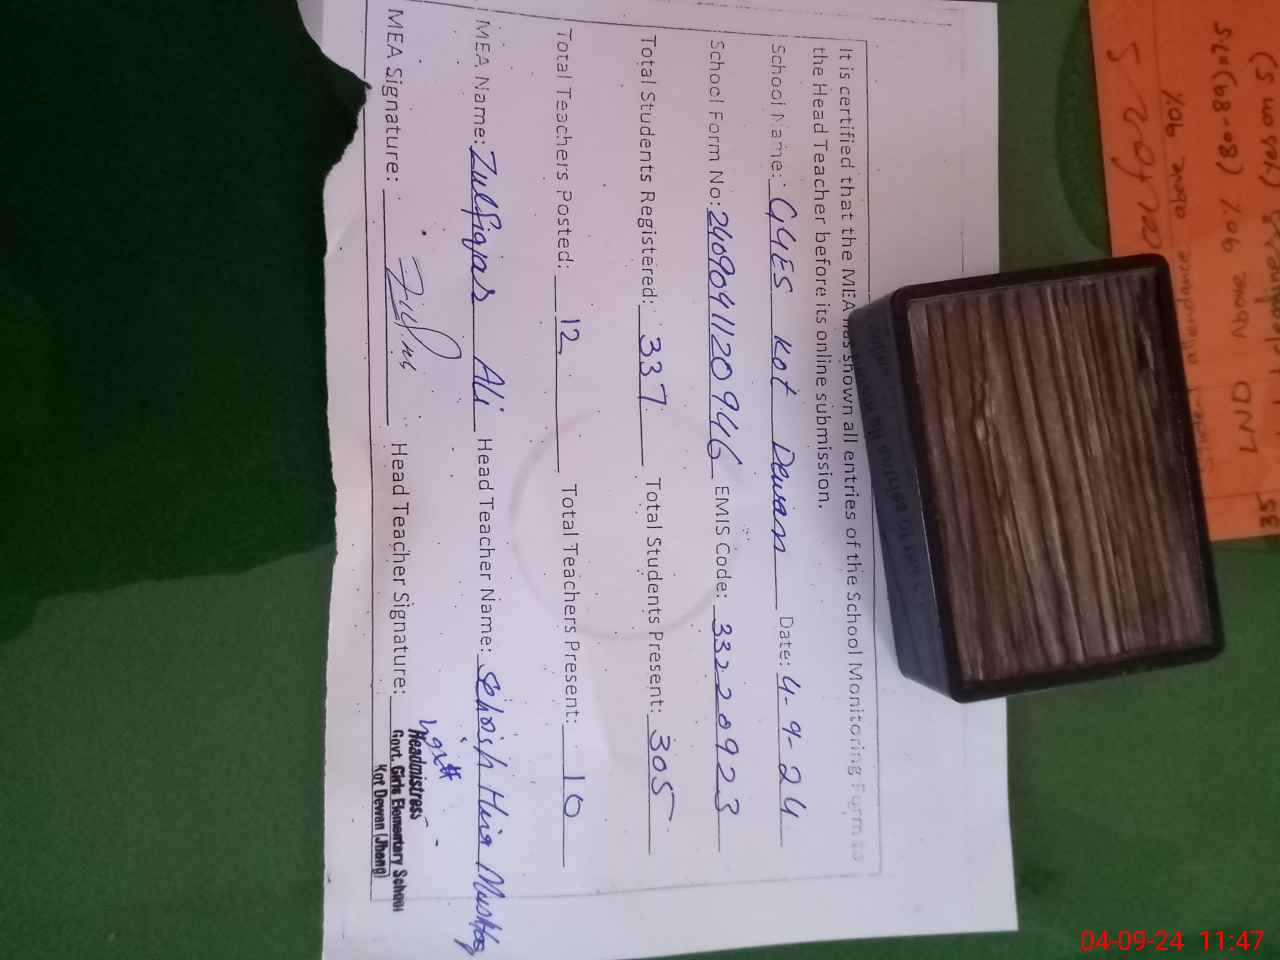 It is certified that the MEA has shown all entries of the School Monitoring Form to
the Head Teacher before its online submission.
School Name: GGES Kot Dewan Date: 4-9-24
School Form No: 2409041120946 EMIS Code: 33220923
Total Students Registered: 337 Total Students Present: 305
Total Teachers Posted: 12 Total Teachers Present: 10
MEA Name: Zulfiqar Ali Head Teacher Name: Sehrish Hira Mushtaq
MEA Signature: Head Teacher Signature:
Headmistress
Govt. Girls Elementary School
Kot Dewan (Jhang)
attendance above 90%
LND above 90% (80-89)=7.5
04-09-24 11:47